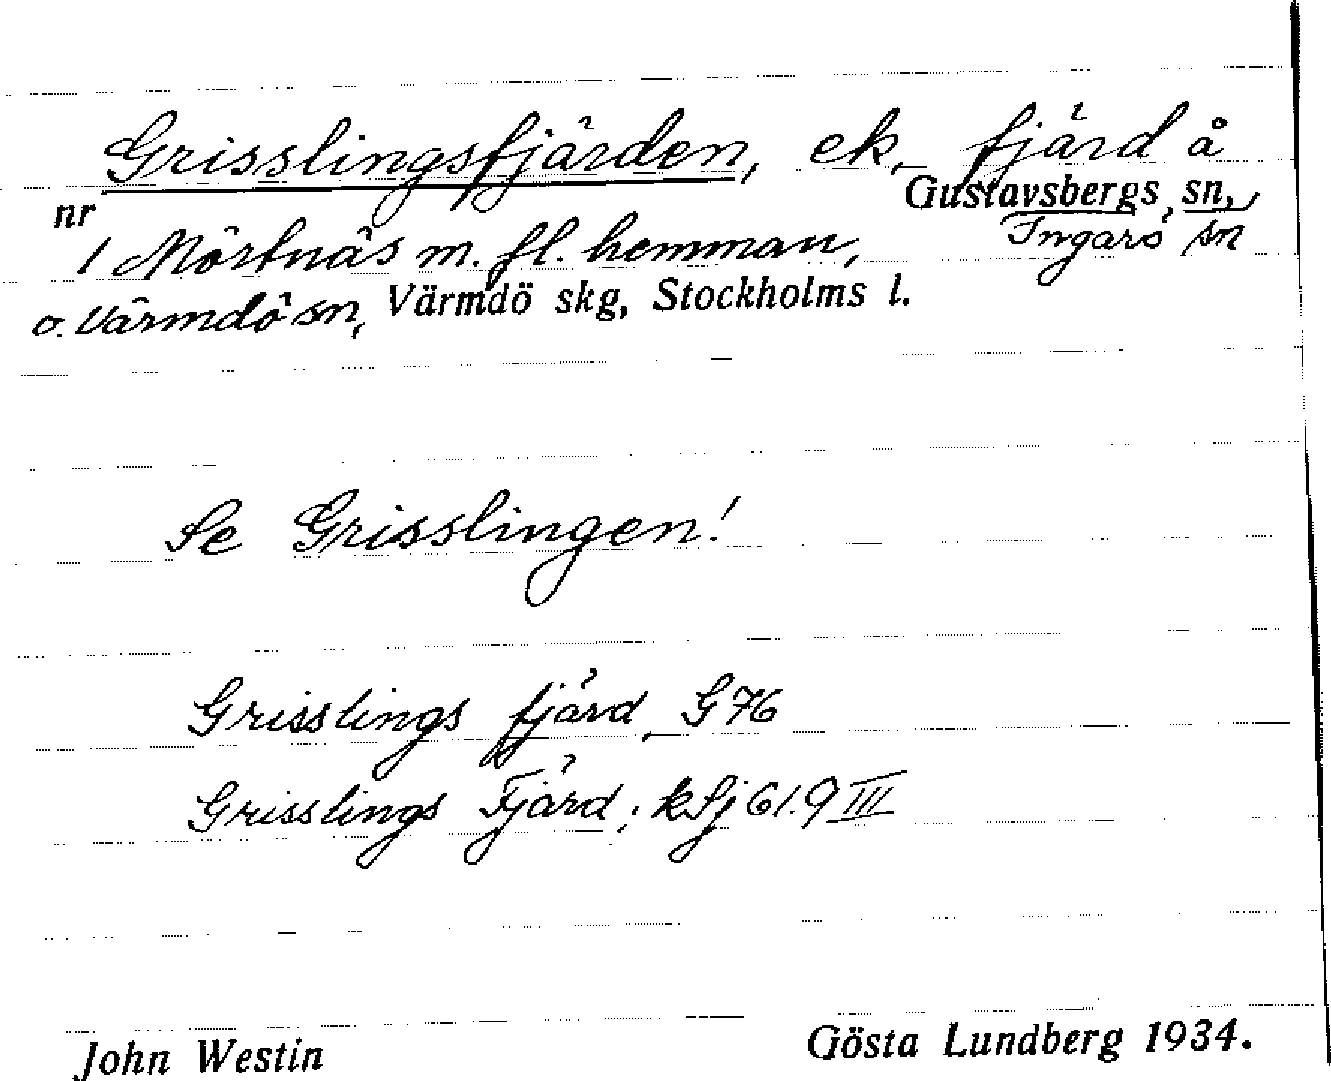 Grisslingsfjärden, ek, fjärd å
nr Gustavsbergs sn,
1 Mörtnäs m. fl. hemman, Ingarö sn
o. Värmdö sn, Värmdö skg, Stockholms l.
Se Grisslingen!
Grisslings fjärd, G 76
Grisslings Fjärd; kSj 61.9 III
John Westin Gösta Lundberg 1934.